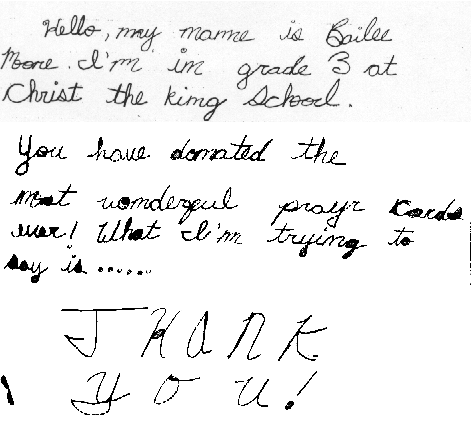 Hello, my name is Bailee
Moore. I'm in grade 3 at
Christ the king School.
You have donated the
most wonderful prayr cards
ever! What I'm trying to
say is......
THANK
YOU!